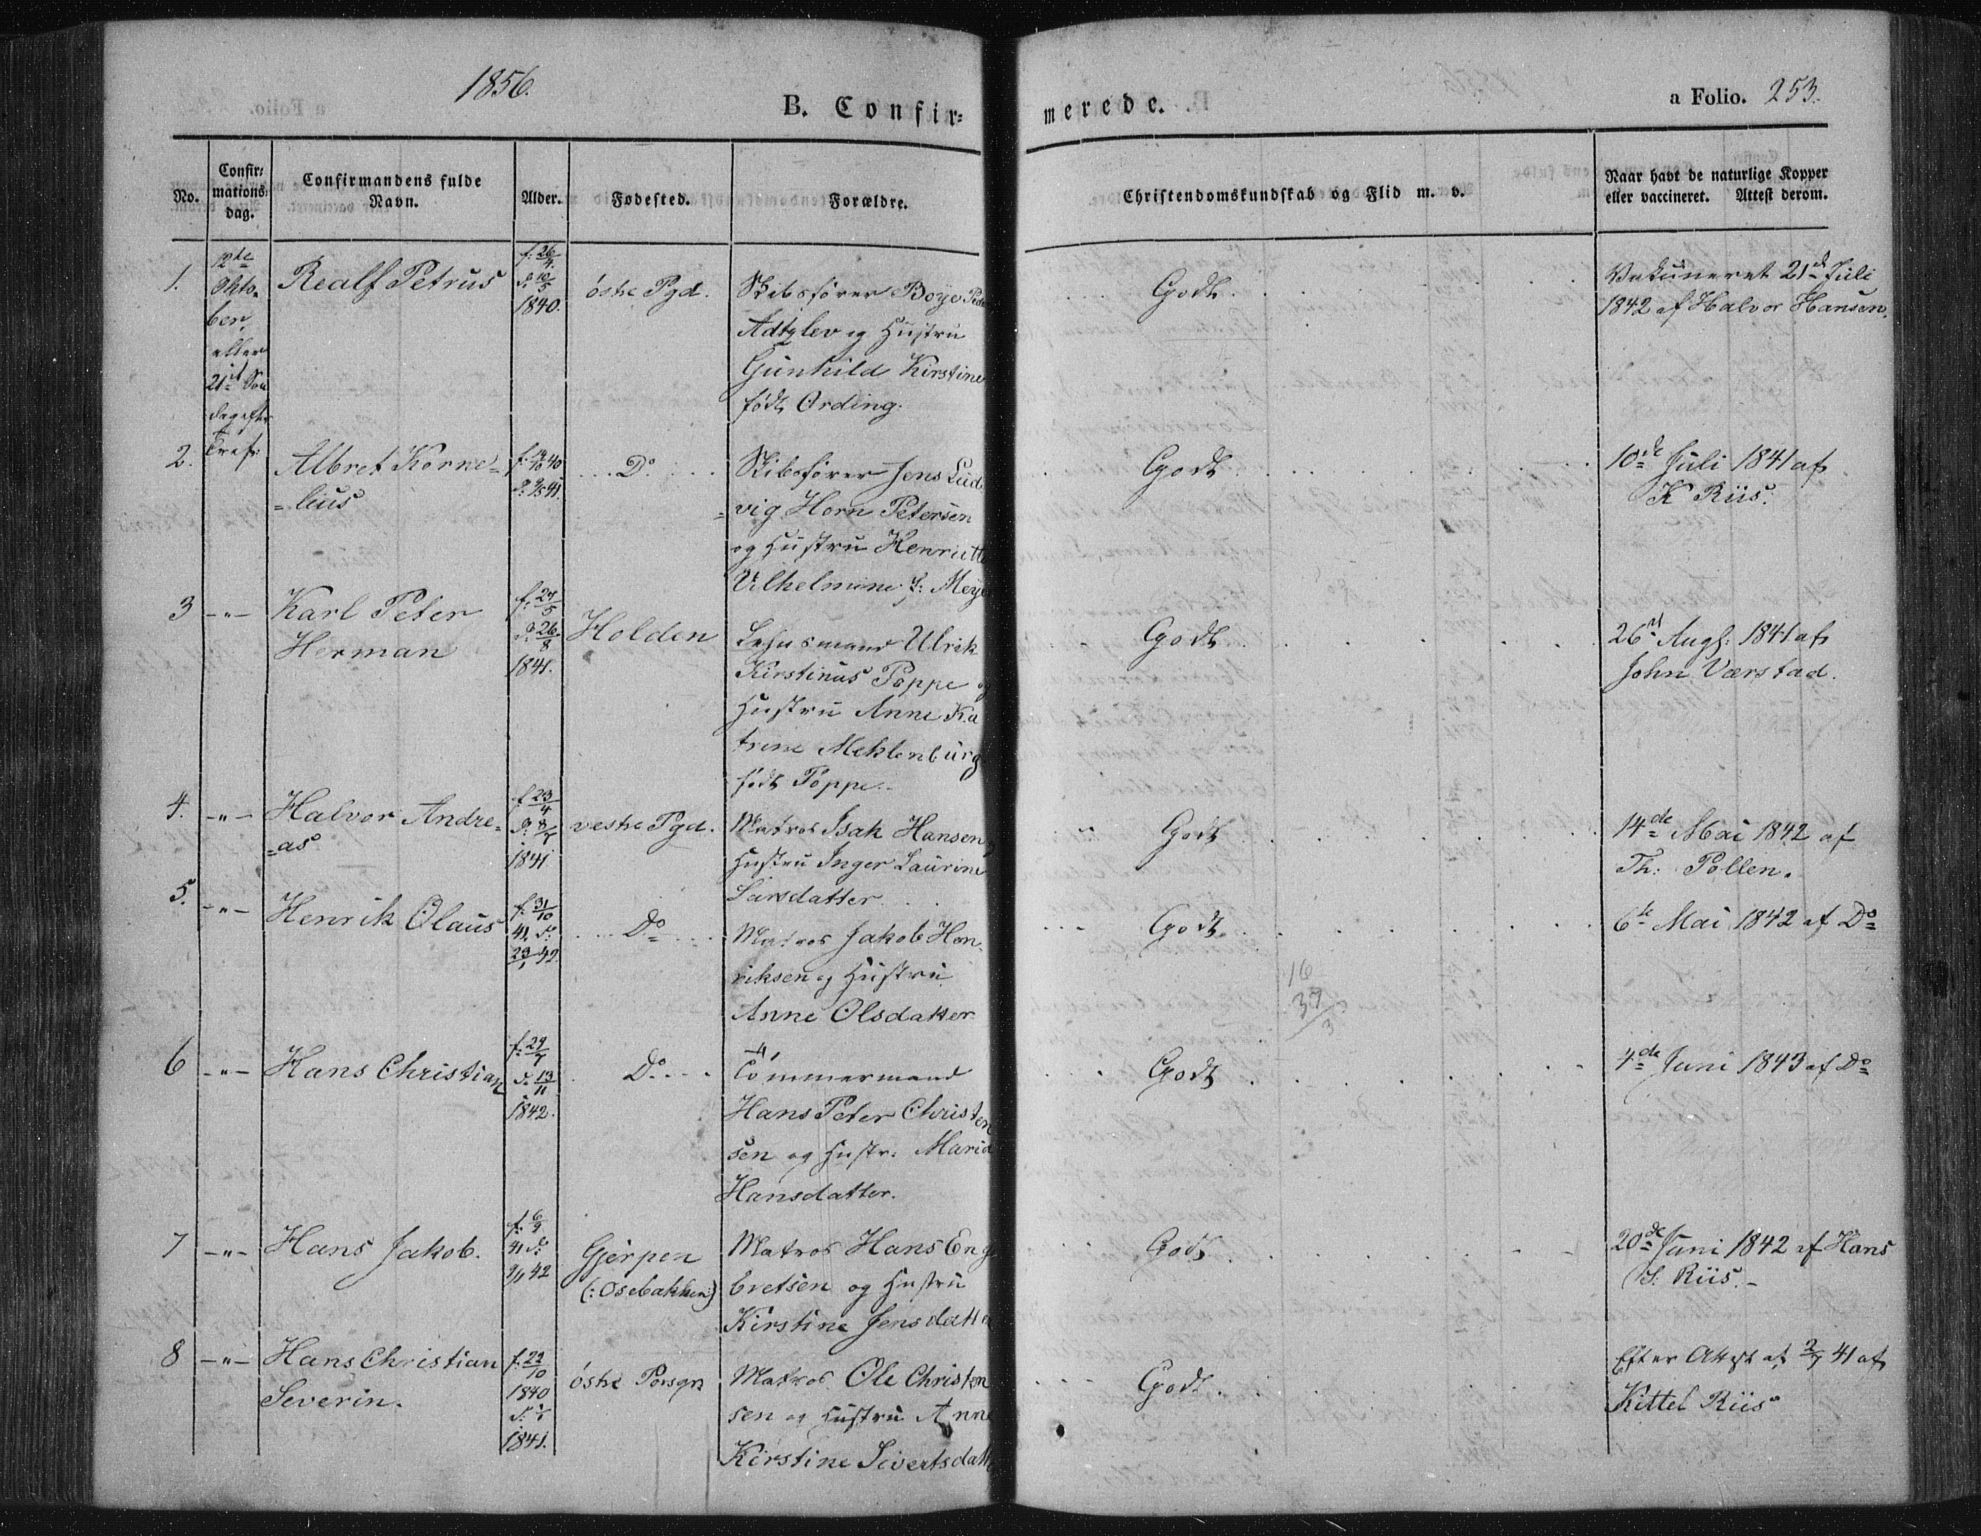 1856.
B. Confir=
merede.
a Folio. 253.
No.
Confir=
mations=
dag.
Confirmandens fulde
Navn.
Alder.
Fødested.
Forældre.
Christendomskundskab og Flid m. v.
Naar havt de naturlige Kopper
eller vaccineret. Attest derom.
1.
12te
Okto-
ber,
eller
21de Søn
dag efter
Tref:
Realf Petrus
f: 26/4.
d. 10/5
1840.
østre Pgd.
Skibsfører Boye
og Hustru
Gunhild Kirstine
født Ording.
Godt.
Vakcineret 21de Juli
1842 af Halvor Hansen.
2.
Albret Korne=
=lius
40
41.
Do.
Skibsfører Jens Lud
=vig Horn Petersen
og Hustru Henriette
Vilhelmine f: Meye
Godt.
10de Juli 1841 af
K Riis.
3 -"-
Karl Peter
Herman
f: 24/5
d. 26/8
1841.
Holden
Lehnsmand Ulrik
Kirstinus Poppe og
Hustru Anne Ka
trine Meklenburg
født Poppe.
Godt.
26de Augh: 1841 af
John Værstad.
4. -"-
Halvor Andre=
=as
f: 23/4
d. 8/7
1841.
vestre Pgd.
Matros Isak Hansen
Hustru Inger Laurine
Larsdatter.
Godt.
14de Mai 1842 af
Th: Pollen.
5. -"-
Henrik Olaus
f: 31/10
41 d:
23/1 42.
Do
Matros Jakob Hen
riksen og Hustru
Anne Olsdatter
Godt.
6te Mai 1842 af Do
16
37/3
6 -"-
Hans Christian
f: 29/7
d. 13/11
1842.
Do.
Tømmermand
Hans Peter Christen
sen og Hustr: Maria
Hansdatter.
Godt.
4de Juni 1843 af Do
7 -"-
Hans Jakob.
f. 6/9
41 d:
42
Gjerpen
(: Osebakken:)
Matros Hans Eng
bretsen og Hustru
Kirstine Jensdatte
Godt.
20de Juni 1842 af Hans
S. Riis.-
8 -"-
Hans Christian
Severin.
f: 22/10
1840
d. 1/1
1841.
østre Porsgr
Matros Ole Christen
sen og Hustru Anne
Kirstine Sivertsdatt
Godt.
Efter Attest af 2/7 41 af
Kittel Riis